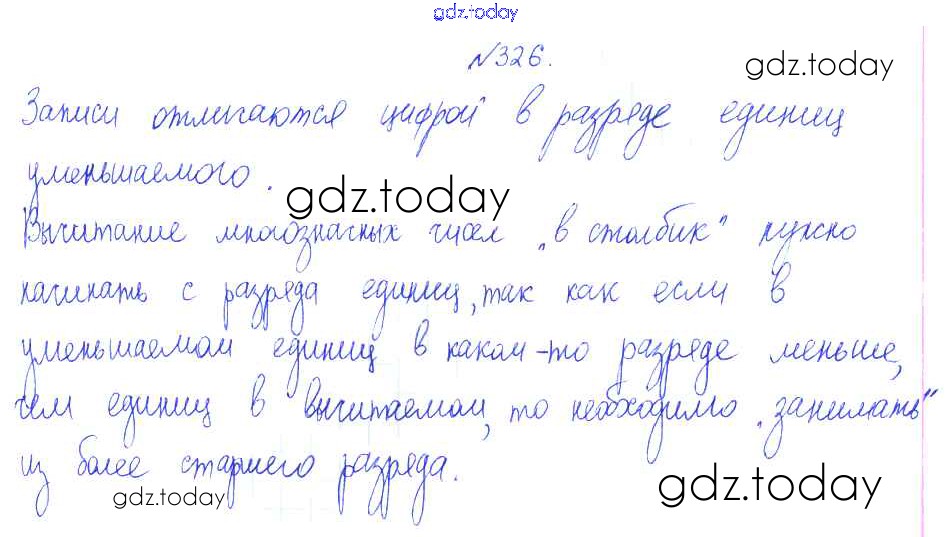 gdz.today
№326.
gdz.today
Записи отличаются цифрой в разряде единиц
уменьшаемого.
gdz.today
Вычитание многозначных чисел „в столбик" нужно
начинать с разряда единиц, так как если в
уменьшаемом единиц в каком-то разряде меньше,
чем единиц в вычитаемом, то необходимо „занимать"
из более старшего разряда.
gdz.today
gdz.today